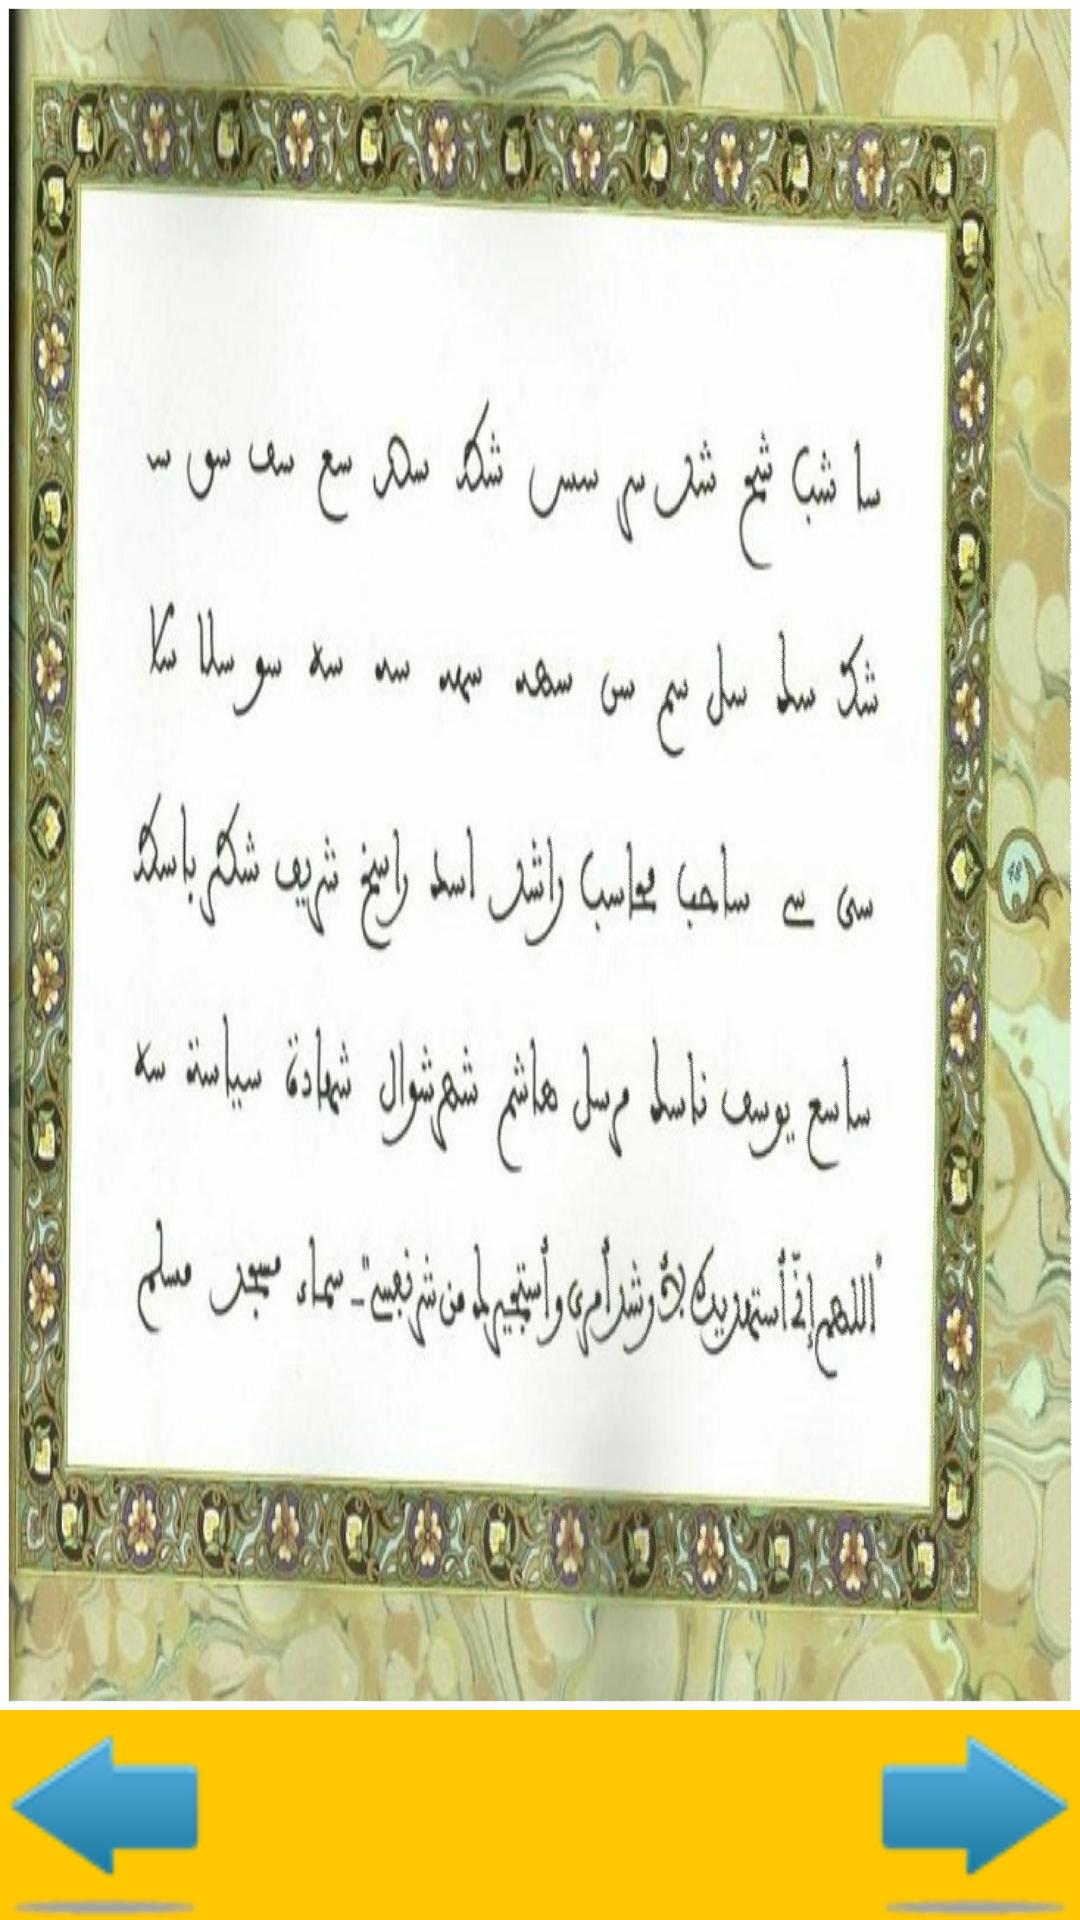 سا شب شمخ شد سر سس شكد سهد سع سف سو سـ
شك سلد سل سم س سهه سهه سه سه سو سلا سكا
سى سے ساحب محاسب راشد اسد راسخ شريف شكر باسكد
ساسع يوسف ناسلد مرسل هاشم شهر شوال شهادة سياسة سه
اللهم إني أستهديك لأرشد أمري وأستجيرك من شر نفسي ـ سماء مسجد مسلم
48